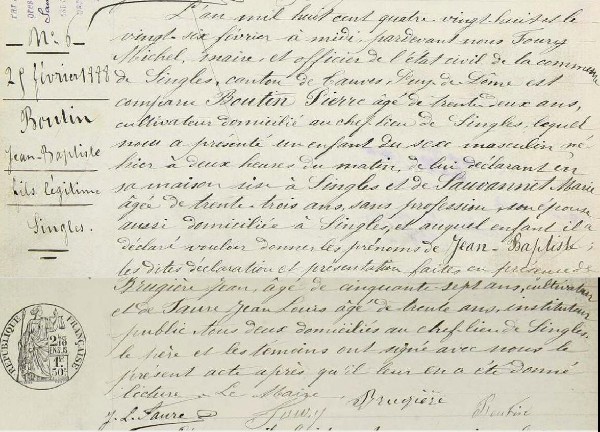 N° 6
25 février 1888
Boutin
Jean-Baptiste
fils légitime
Singles.
L'an mil huit cent quatre vingt huit et le
vingt-six février à midi, pardevant nous Foury
Michel, maire, et officier de l'état civil de la commune
de Singles, canton de Tauves, Puy-de-Dôme est
comparu Boutin Pierre âgé de trente deux ans,
cultivateur domicilié au chef lieu de Singles, lequel
nous a présenté un enfant du sexe masculin, né
hier à deux heures du matin, de lui déclarant en
sa maison sise à Singles et de Sauvannet Marie
âgée de trente-trois ans, sans profession, son épouse
aussi domiciliée à Singles, et auquel enfant il a
déclaré vouloir donner les prénoms de Jean-Baptiste;
les dites déclaration et présentation faites en présence de
Brugière Jean, âgé de cinquante-sept ans, cultivateur
et de Faure Jean Louis âgé de trente ans, instituteur
public, tous deux domiciliés au chef lieu de Singles.
le père et les témoins ont signé avec nous le
présent acte après qu'il leur en a été donné
lecture. Le Maire
J. L. Faure Foury Brugière Boutin
RÉPUBLIQUE FRANÇAISE